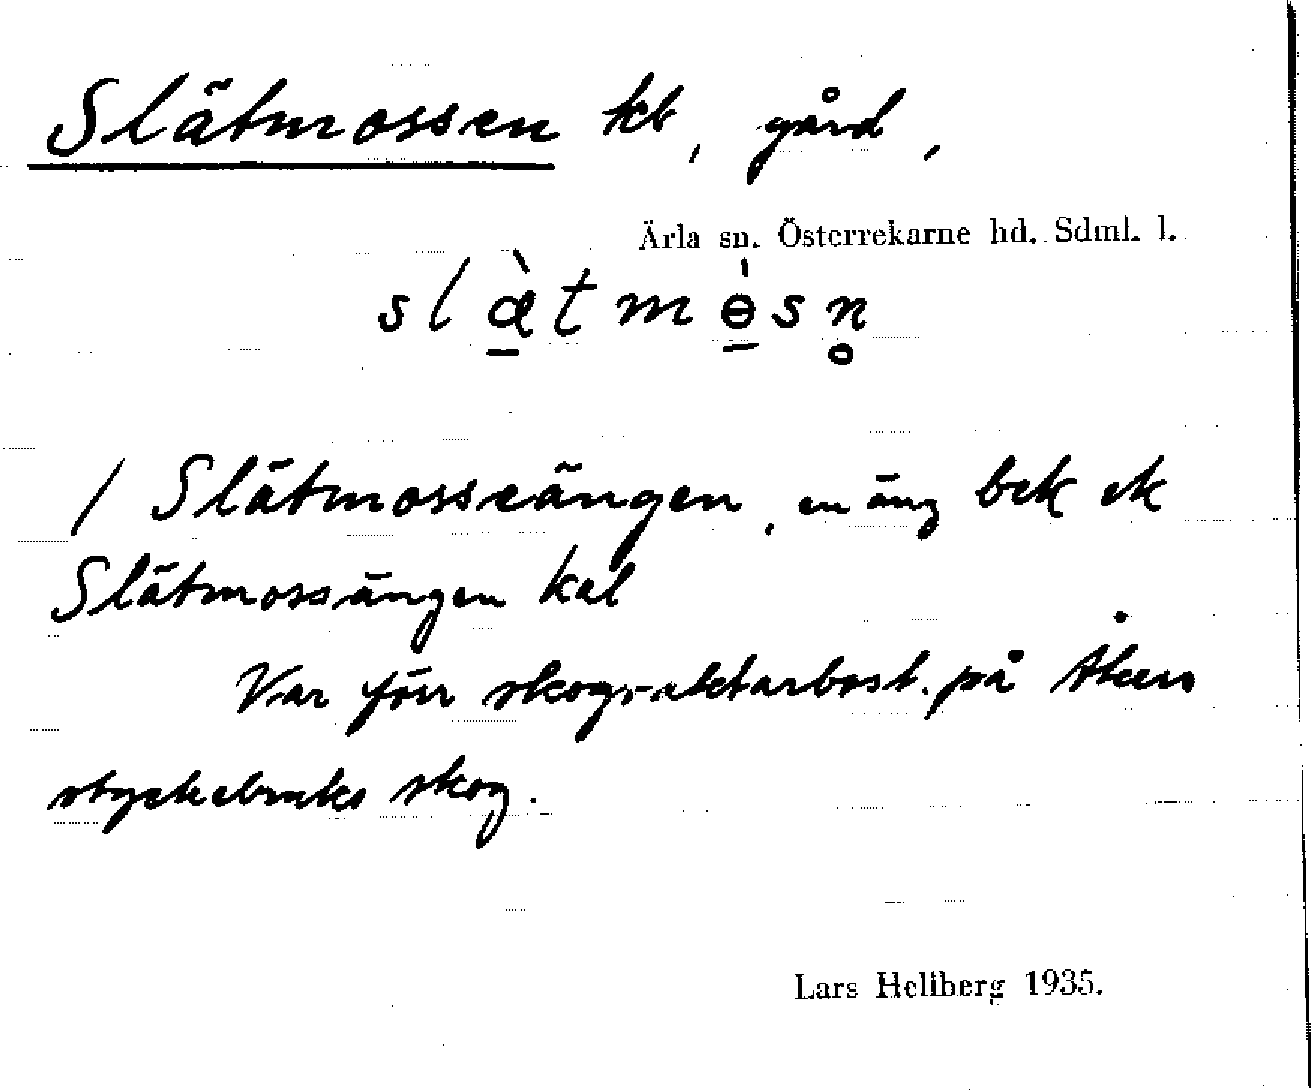 Slätmossen kb, gård,
Ärla sn. Österrekarne hd. Sdml. l.
slæ̀tmɵ̀sn̥
/ Slätmosseängen, en äng bek ek
Slätmossängen kal
Var förr skogvaktarbost. på Åkers
styckebruks skog.
Lars Hellberg 1935.